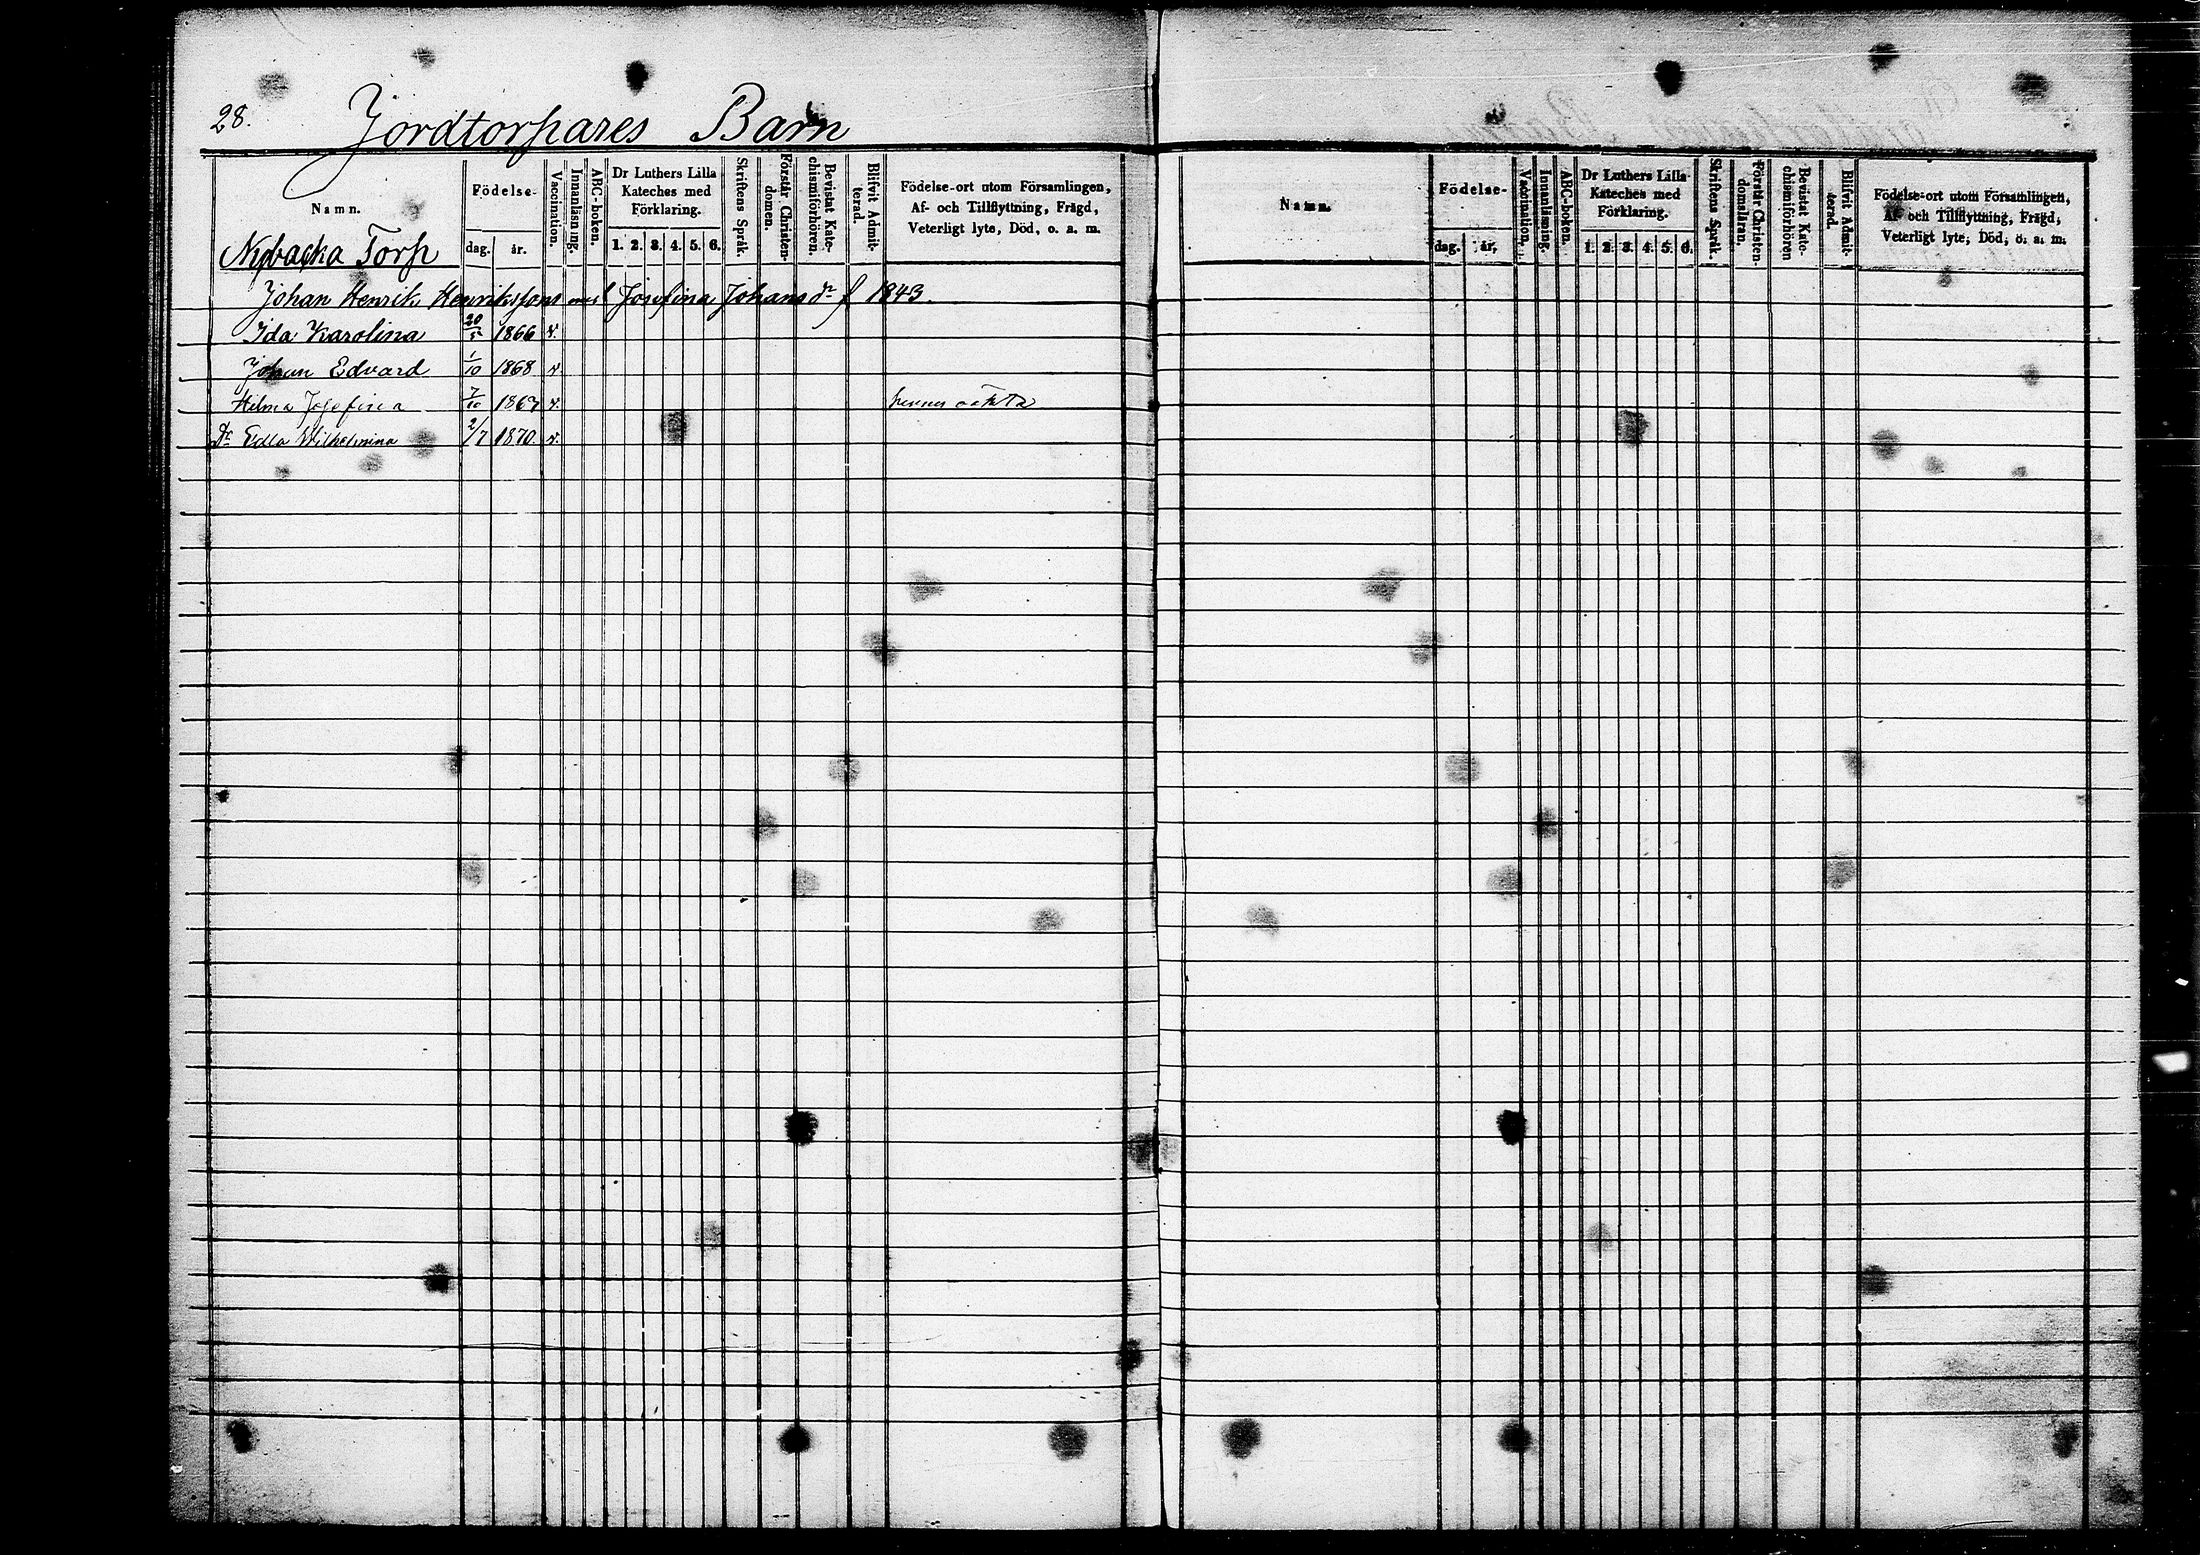 28.
Jordtorpares Barn
Namn.
Födelse-
dag.
år.
Vaccination.
Innanläsning.
ABC-boken.
Dr Luthers Lilla
Kateches med
Förklaring.
1. 2. 3. 4. 5. 6.
Skriftens Språk.
Förstår Christen-
domen.
Bevistat Kate-
chismiförhören.
Blifvit Admit-
terad.
Födelse-ort utom Församlingen,
Af- och Tillflyttning, Frägd,
Veterligt lyte, Död, o. a. m.
Nybacka Torp
Johan Henrik Henrikssons med Josefina Johansdr f 1843.
Ida Karolina 20/5 1866 v.
Johan Edvard 1/10 1868 v.
Hilma Josefina 7/10 1867 v. hennes oäkta
Dr Edla Wilhelmina 2/7 1870. v.
Namn.
Födelse-
dag.
år.
Vaccination.
Innanläsning.
ABC-boken.
Dr Luthers Lilla
Kateches med
Förklaring.
1. 2. 3. 4. 5. 6.
Skriftens Språk.
Förstår Christen-
domsläran.
Bevistat Kate-
chismiförhören
Blifvit Admit-
terad.
Födelse-ort utom Församlingen,
Af- och Tillflyttning, Frägd,
Veterligt lyte, Död, o. a. m.